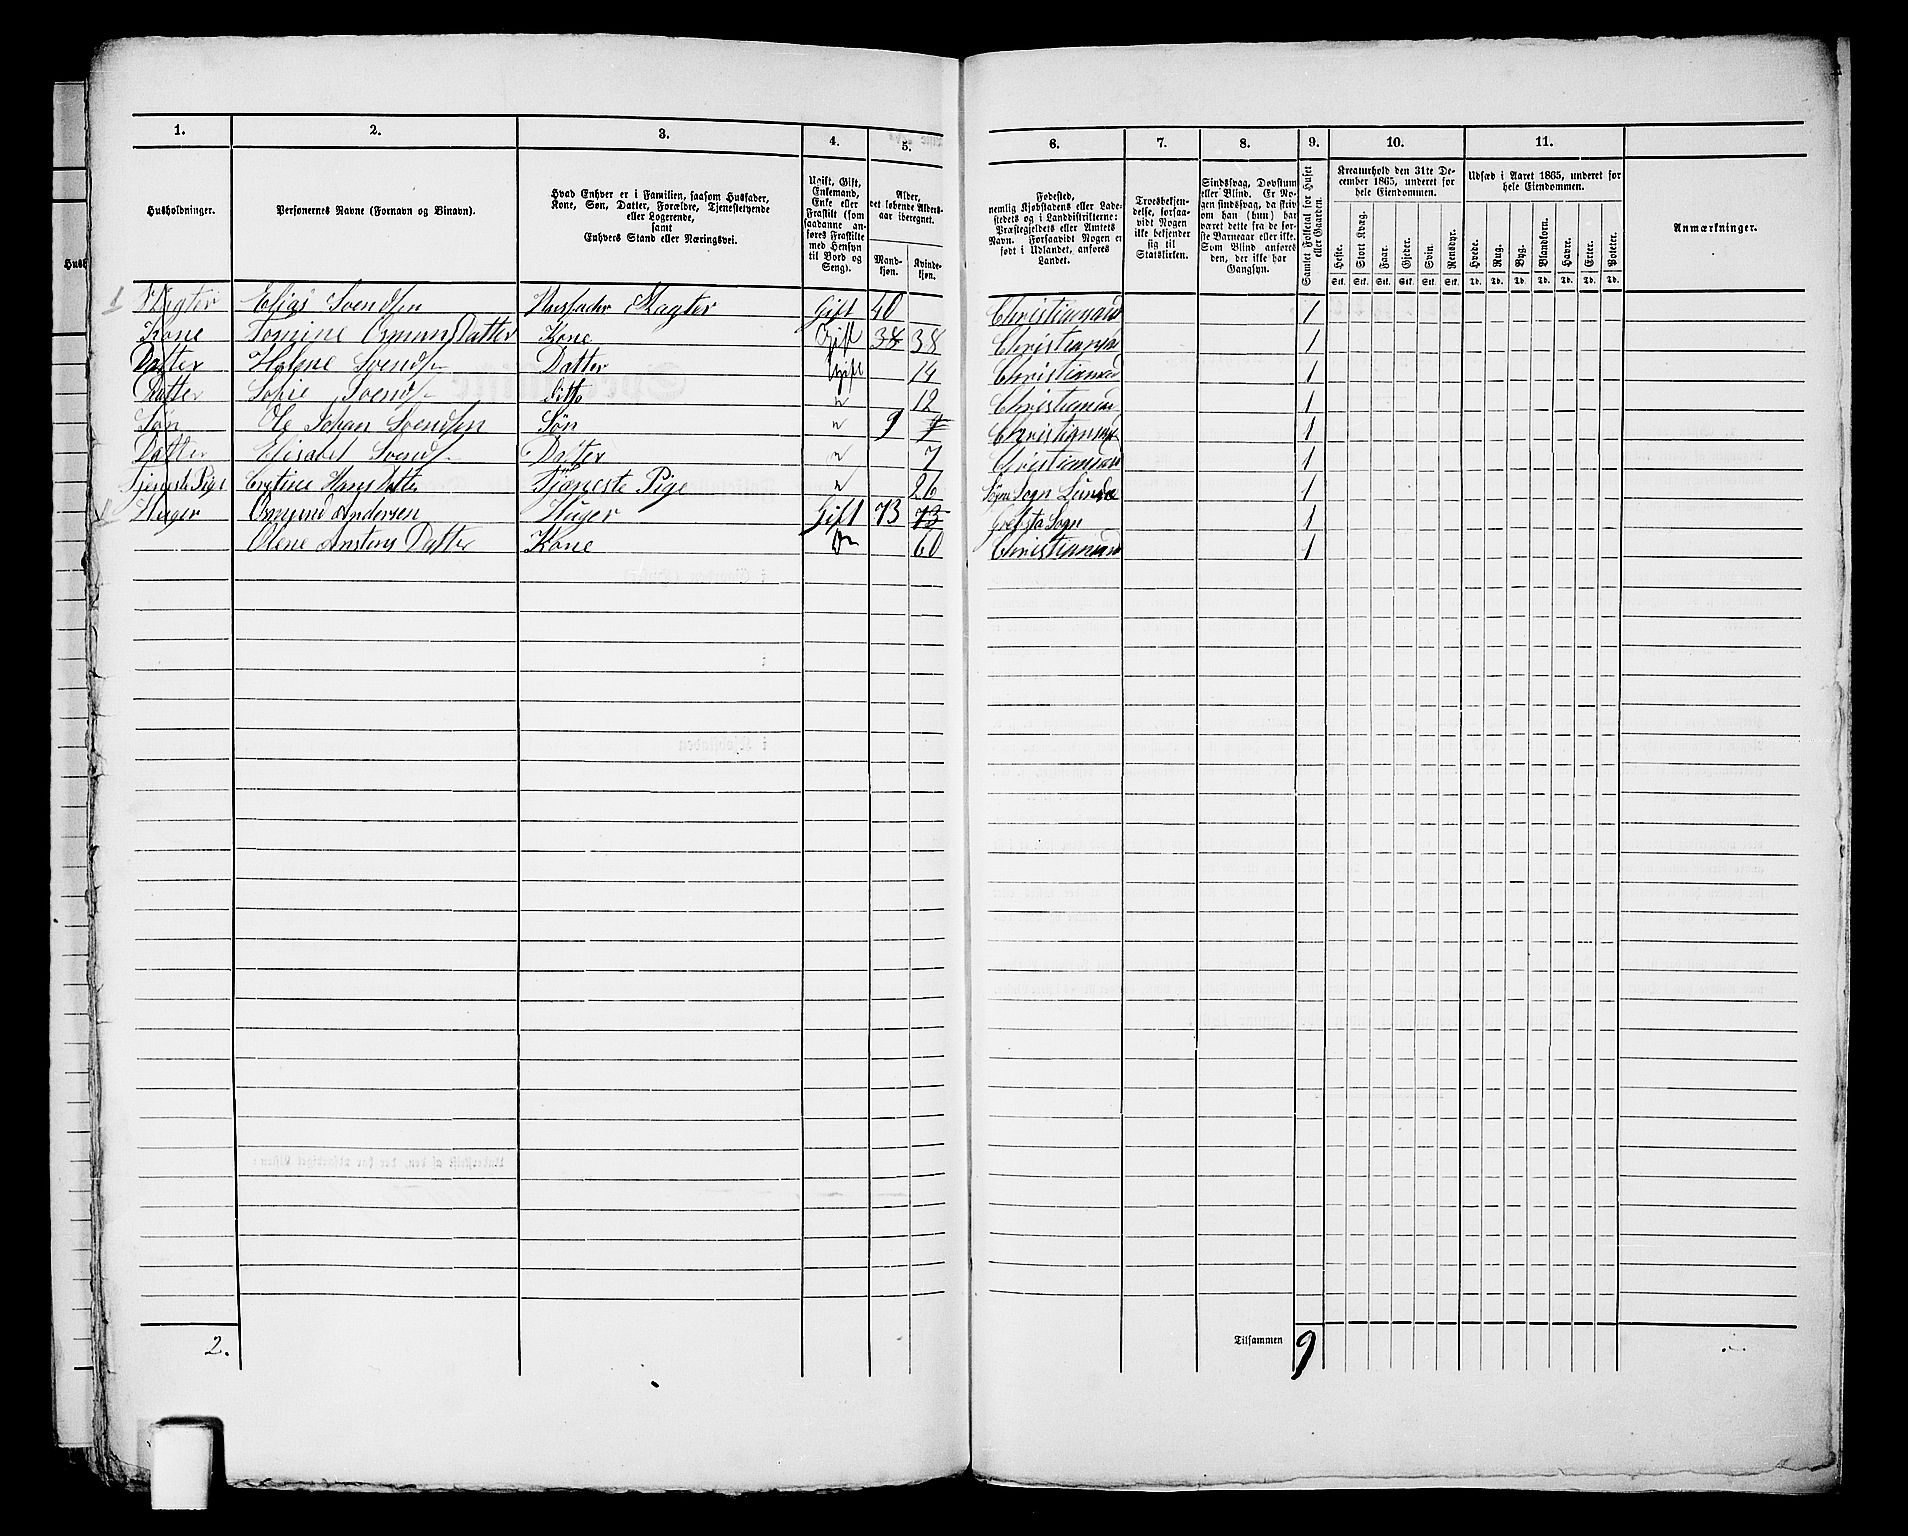 1. 2. 3. 4. 5. 6. 7. 8. 9. 10. 11.
Husholdninger.
Personernes Navne (Fornavn og Binavn).
Hvad Enhver er i Familien, saasom Husfader,
Kone, Søn, Datter, Forældre, Tjenestetyende
eller Logerende,
samt
Enhvers Stand eller Næringsvei.
Ugift, Gift,
Enkemand,
Enke eller
Fraskilt (som
saadanne an-
føres Fraskilte
med Hensyn
til Bord og
Seng).
Alder,
det løbende Alders-
aar iberegnet.
Mand-
kjøn.
Kvinde-
kjøn.
Fødested,
nemlig Kjøbstadens eller Lade-
stedets og i Landdistrikterne:
Præstegjeldets eller Amtets
Navn. Forsaavidt Nogen er
født i Udlandet, anføres
Landet.
Troesbekjen-
delse, forsaa-
vidt Nogen
ikke bekjender
sig til
Statskirken.
Sindssvag, Døvstum
eller Blind. Er No-
gen sindssvag, da skriv
om han (hun) har
været dette fra de før-
ste Barneaar eller ikke.
Som Blind anføres
den, der ikke har
Gangsyn.
Samlet Folketal for Huset
eller Gaarden.
Kreaturhold den 31te De-
cember 1865, underet for
hele Eiendommen.
Heste. Stort Kvæg. Faar. Gjeder. Svin. Rensdyr.
Stk. Stk. Stk. Stk. Stk. Stk.
Udsæd i Aaret 1865, underet for
hele Eiendommen.
Hvede. Rug. Byg. Blandkorn. Havre. Erter. Poteter.
Td. Td. Td. Td. Td. Td. Td.
Anmærkninger.
1 Slagter Elias Svendsen Husfader Slagter Gift 40 Christiansand 1
Kone Tomine Osmunds Datter Kone Gift 38 38 Christiansan 1
Datter Helene Svends Datter Ugift 14 Christiansand 1
Datter Sofie Svends ditto " 12 Christiansand 1
Søn Ole Johan Svendsen Søn " 9 Christiansand 1
Datter Elisabet Svends Datter " 7 Christiansand 1
Tjeneste Pige Hans Datter Tjeneste Pige " 26 Sogn 1
1 Osmund Andersen Gift 73 73 Sogn 1
Olene Datter Kone Do 60 Christiansand 1
2.
Tilsammen 9